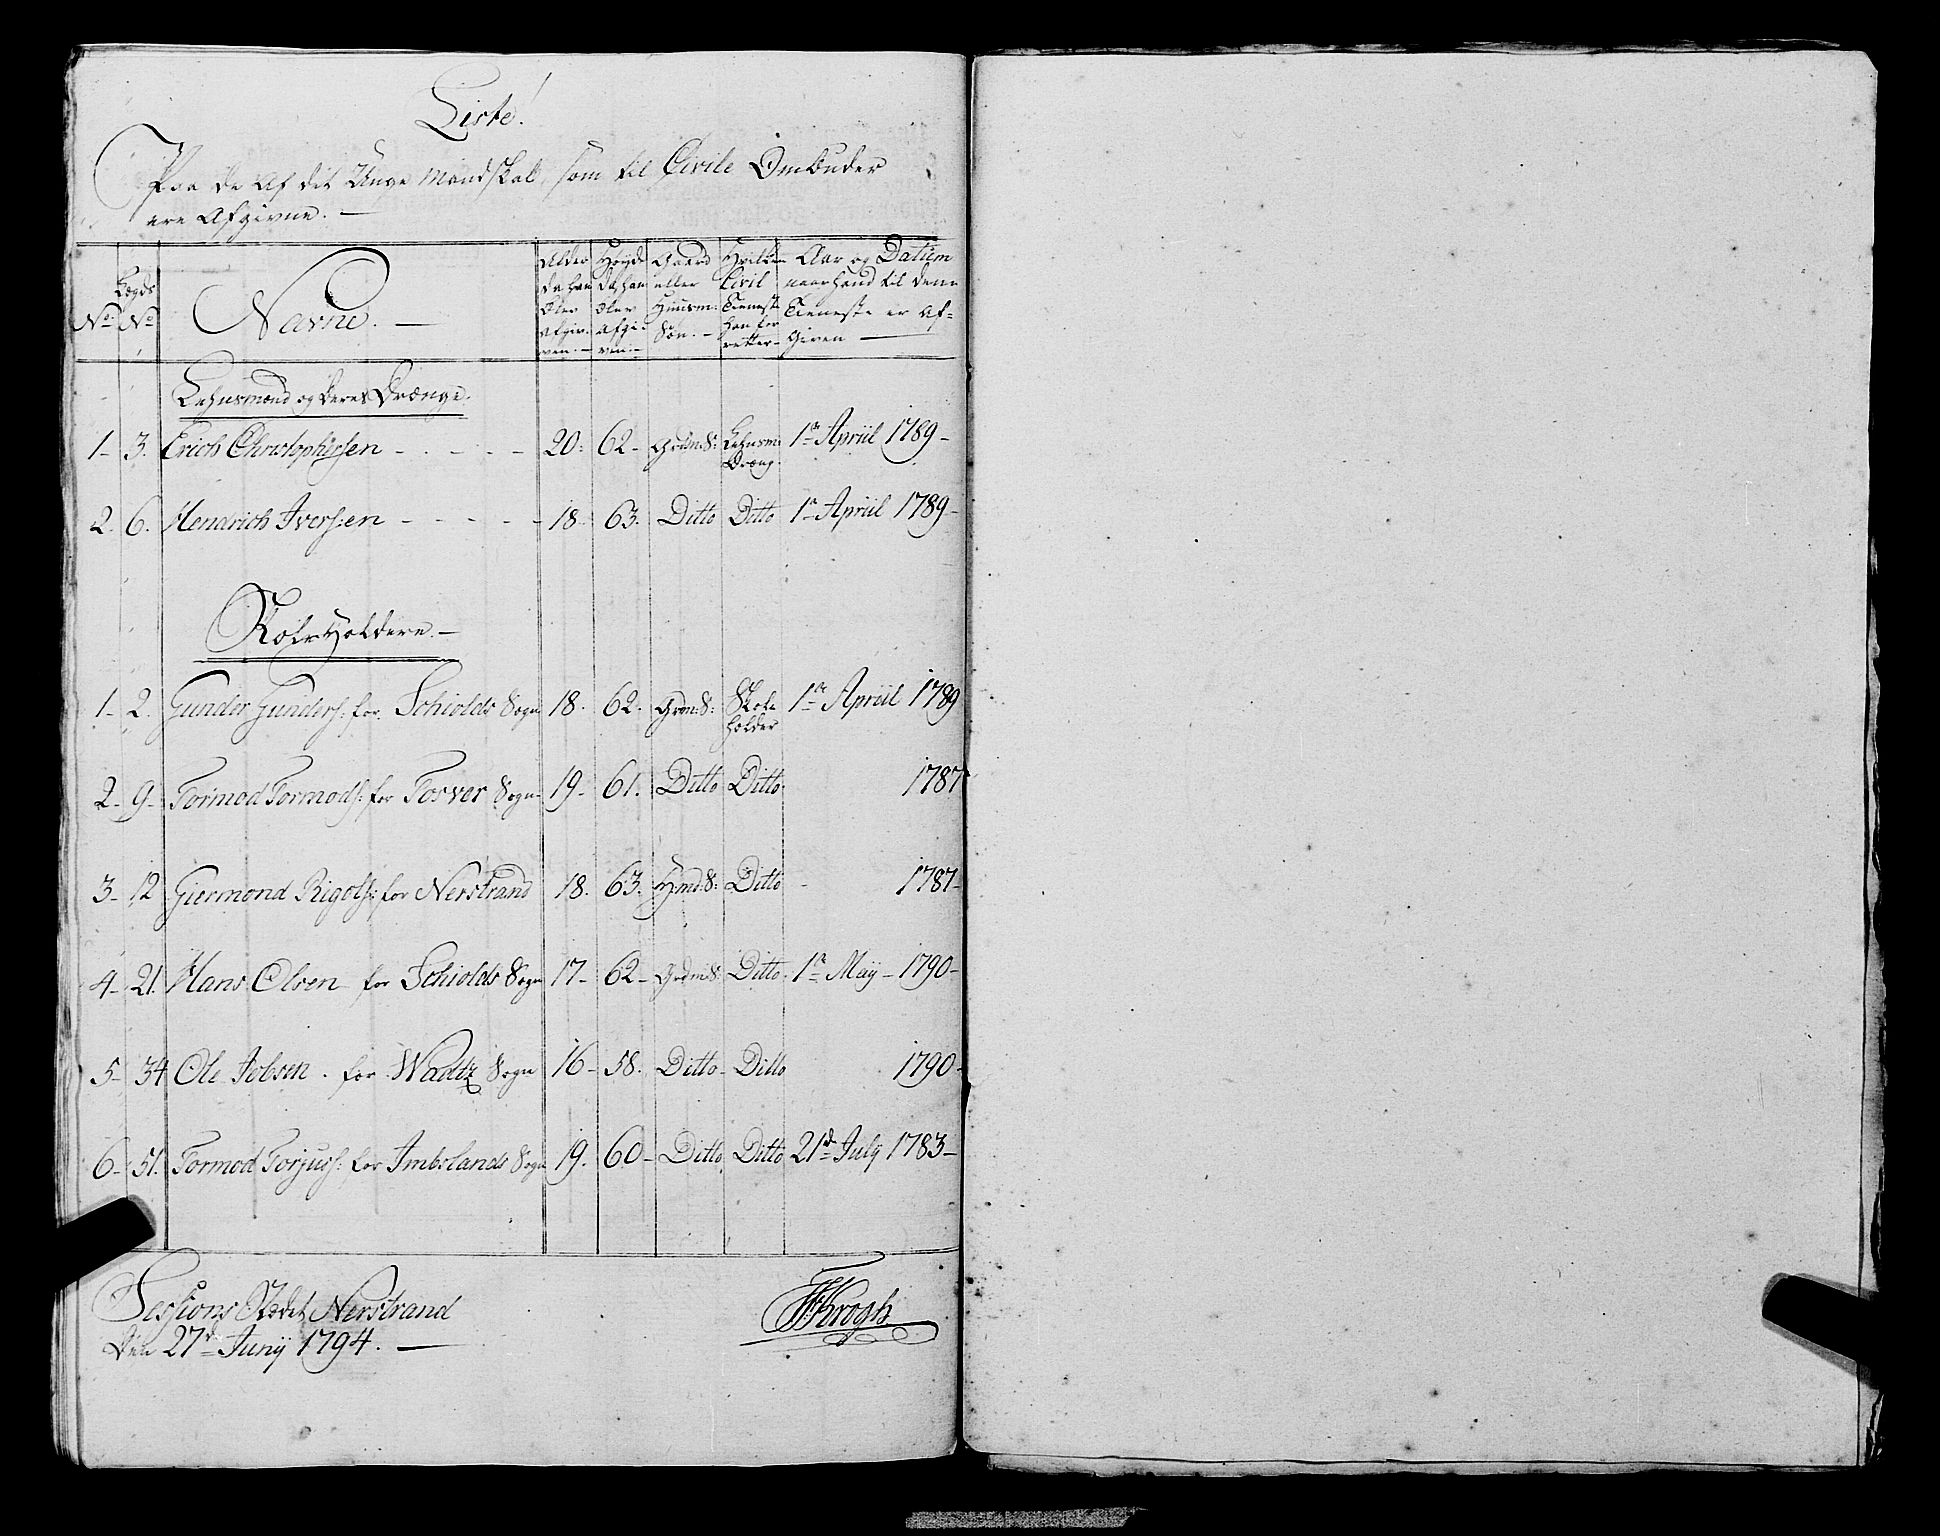 Liste!
Paa de af det Unge Mandskab, som til Civile Ombuder
ere Afgivne. —
No: | Lægds No | Navne. — | Alder da han blev afgiven. — | Høyde da han blev afgiven — | Gaard eller Huusm: Søn. — | Hvilken Civil Tieneste han forretter — | Aar og Datum naar hand til denne Tieneste er Afgiven —
Lehnsmænd og deres Drænge.
1 - 3. Erich Christophersen - - - - 20: 62 - Grdm: S: Lehnsm: Dræng. 1te Apriil 1789 -
2. 6. Hendrich Iversen - - - - - 18. 63. Ditto Ditto 1te Apriil 1789 -
Skoleholdere. —
1 - 2. Gunder Gunders: for Schiolds Sogn 18. 62. Grdm: S: Skoleholder 1te Apriil 1789
2 - 9 - Tormod Tormods: for Torver Sogn - 19 - 61. Ditto Ditto. 1787
3 - 12 Giermond Rigols: for Nerstrand 18. 63. Hmd: S: Ditto - 1787 -
4 - 21. Hans Olsen for Schiolds Sogn 17 - 62 - Grdm: S: Ditto. 1te Maÿ - 1790 -
5 - 34 Ole Jobsen. for Wadtz Sogn 16 - 58. Ditto - Ditto 1790 -
6 - 51. Tormod Torjuss: for Imbslands Sogn 19. 60 - Ditto Ditto 21de July 1783 -
Sessions Stædet Nerstrand
Den 27de Junÿ 1794. —
FKrogh